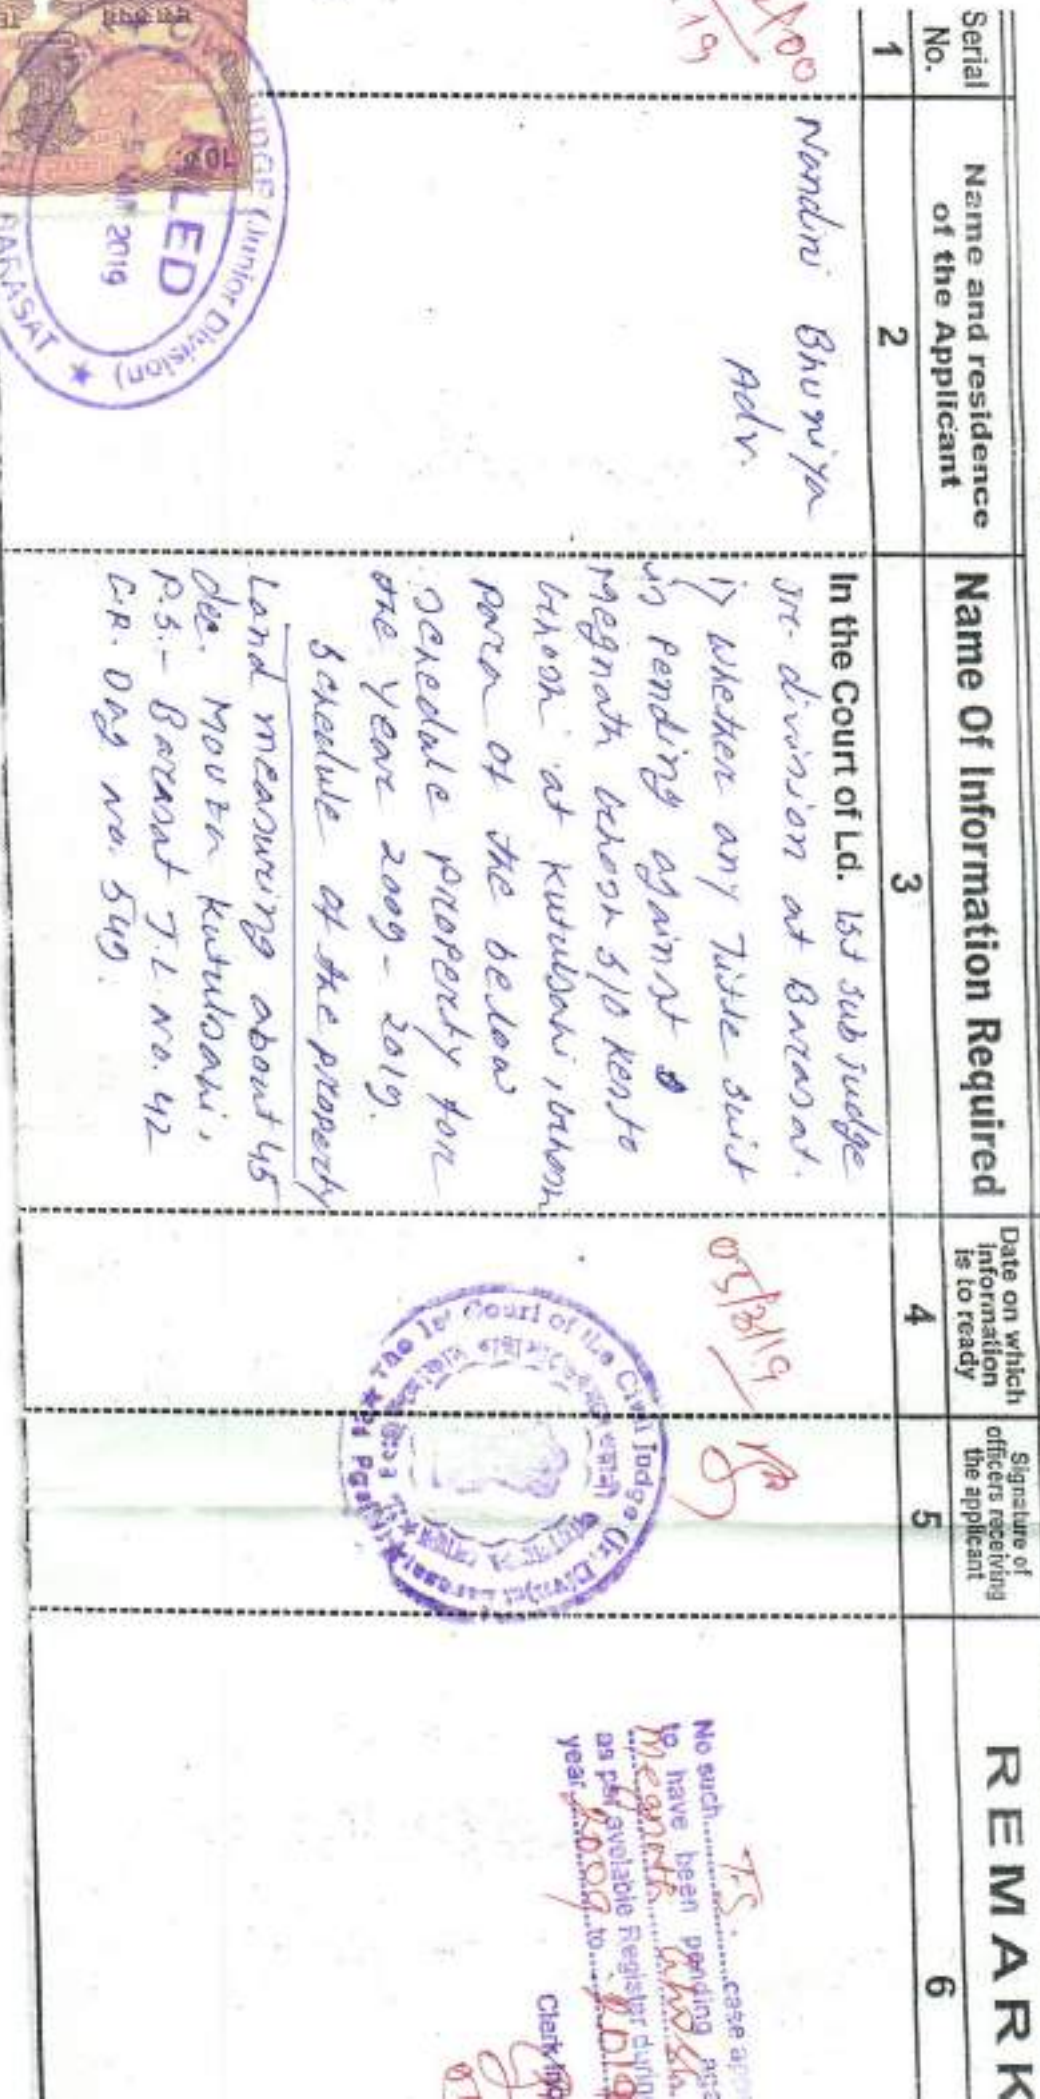 Serial
No.
Name and residence
of the Applicant
Name Of Information Required
Date on which
information
is to ready
Signature of
officers receiving
the applicant
REMARK
1
2
3
4
5
6
Nandini Bhuniya
Adv.
In the Court of Ld. 1st sub judge
jre. division at Barasat.
i) whether any Title suit
is pending against
Megnath Ghosh S/O Kento
Ghosh at Kutulsahi, Ghosh
Para of the below
schedule property for
the year 2009 - 2019.
Schedule of the property
Land measuring about 45
dec. Mouza Kutulsahi,
P.S.- Barasat J.L. No. 42
L.R. Dag no. 549.
05/3/19
No such T.S. case
to have been pending
Meganath Ghosh
as per avelable Register during
year 2009 to 2019
Clerk
JUDGE (Junior Division)
LED
2019
BARASAT
The 1st Court of the Civil Judge (Jr. Divn)